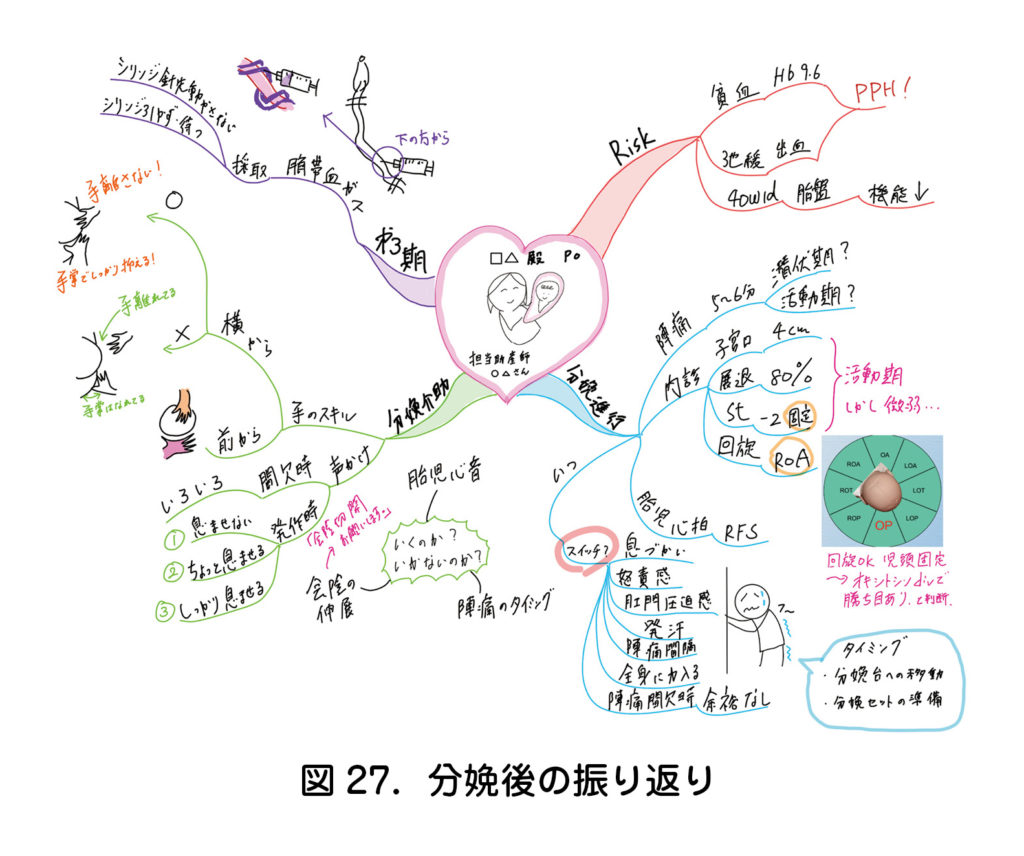 □△殿 P0
担当助産師
○△さん
Risk
貧血 Hb9.6
弛緩出血
PPH!
40w1d 胎盤 機能↓
分娩進行
陣痛
5〜6分
潜伏期?
活動期?
内診
子宮口 4cm
展退 80%
St -2 固定
回旋 ROA
活動期
しかし 微弱…
OA
LOA
LOT
LOP
OP
ROP
ROT
ROA
回旋OK 児頭固定
→オキシトシンdivで
勝ち目あり、と判断。
胎児心拍 RFS
いつ
スイッチ?
息づかい
怒責感
肛門圧迫感
発汗
陣痛間隔
全身に力入る
陣痛間欠時 余裕なし
タイミング
・分娩台への移動
・分娩セットの準備
分娩介助
手のスキル
横から
○
手離さない!
手掌でしっかり抑える!
×
手離れてる
手掌はなれてる
前から
声かけ
間欠時
いろいろ
発作時
① 息ませない
② ちょっと息ませる
③ しっかり息ませる
胎児心音
いくのか?
いかないのか?
会陰の
伸展
陣痛のタイミング
「会陰切開
お願いします。」
第3期
臍帯血ガス
採取
シリンジ針先動かさない
シリンジ引かず・待つ
下の方から
図 27. 分娩後の振り返り